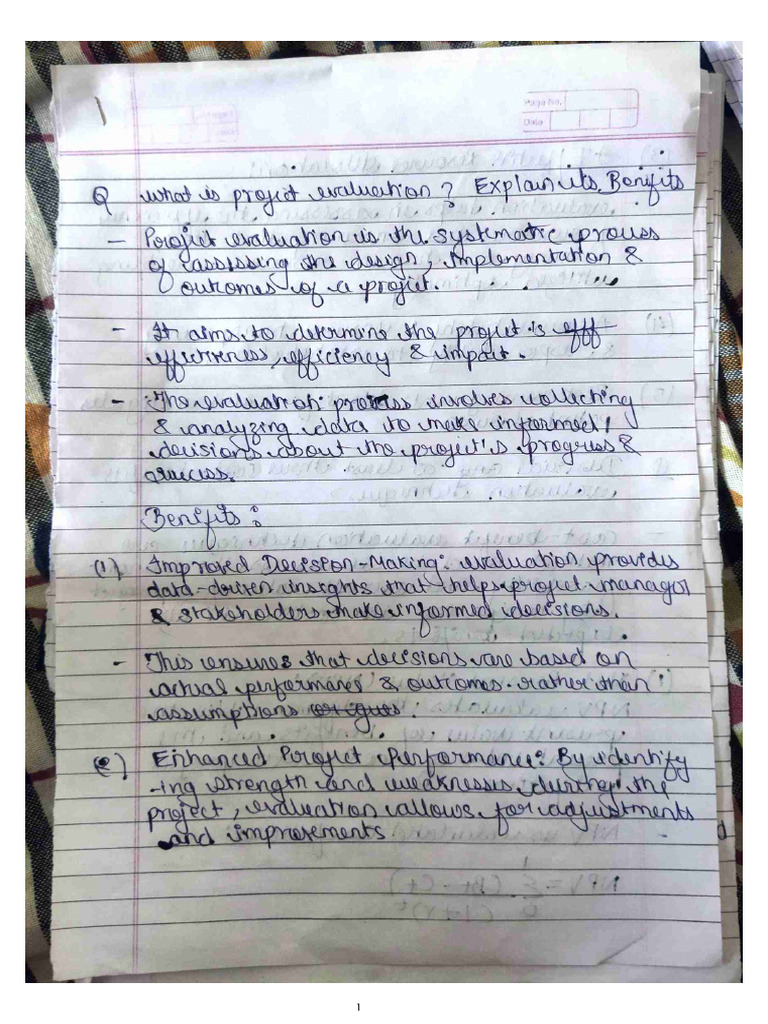 1
Page No.
Date
Q what is project evaluation? Explain its Benifits
- Project evaluation is the systematic process
of assessing the design, implementation &
outcomes of a project.
- It aims to determine the project is eff
effectiveness, efficiency & impact.
- The evaluation process involves collecting
& analyzing data to make informed
decisions about the project's progress &
success.
Benifits:
(1) Improved Decision-Making: evaluation provides
data-driven insights that helps project manager
& stakeholders make informed decisions.
- This ensures that decisions are based on
actual performance & outcomes rather than
assumptions
(2) Enhanced Project Performance: By identify
-ing strength and weaknesses during the
project, evaluation allows for adjustments
and improvements
1